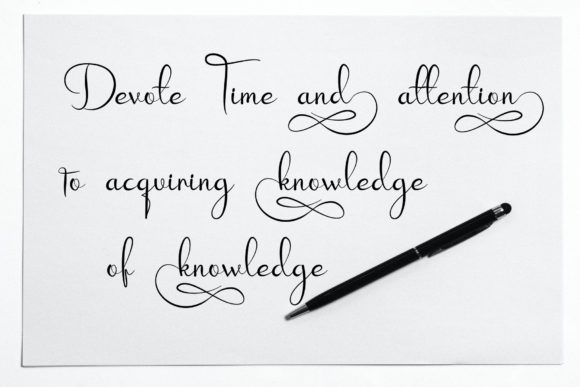 Devote Time and attention
to acquiring knowledge
of knowledge